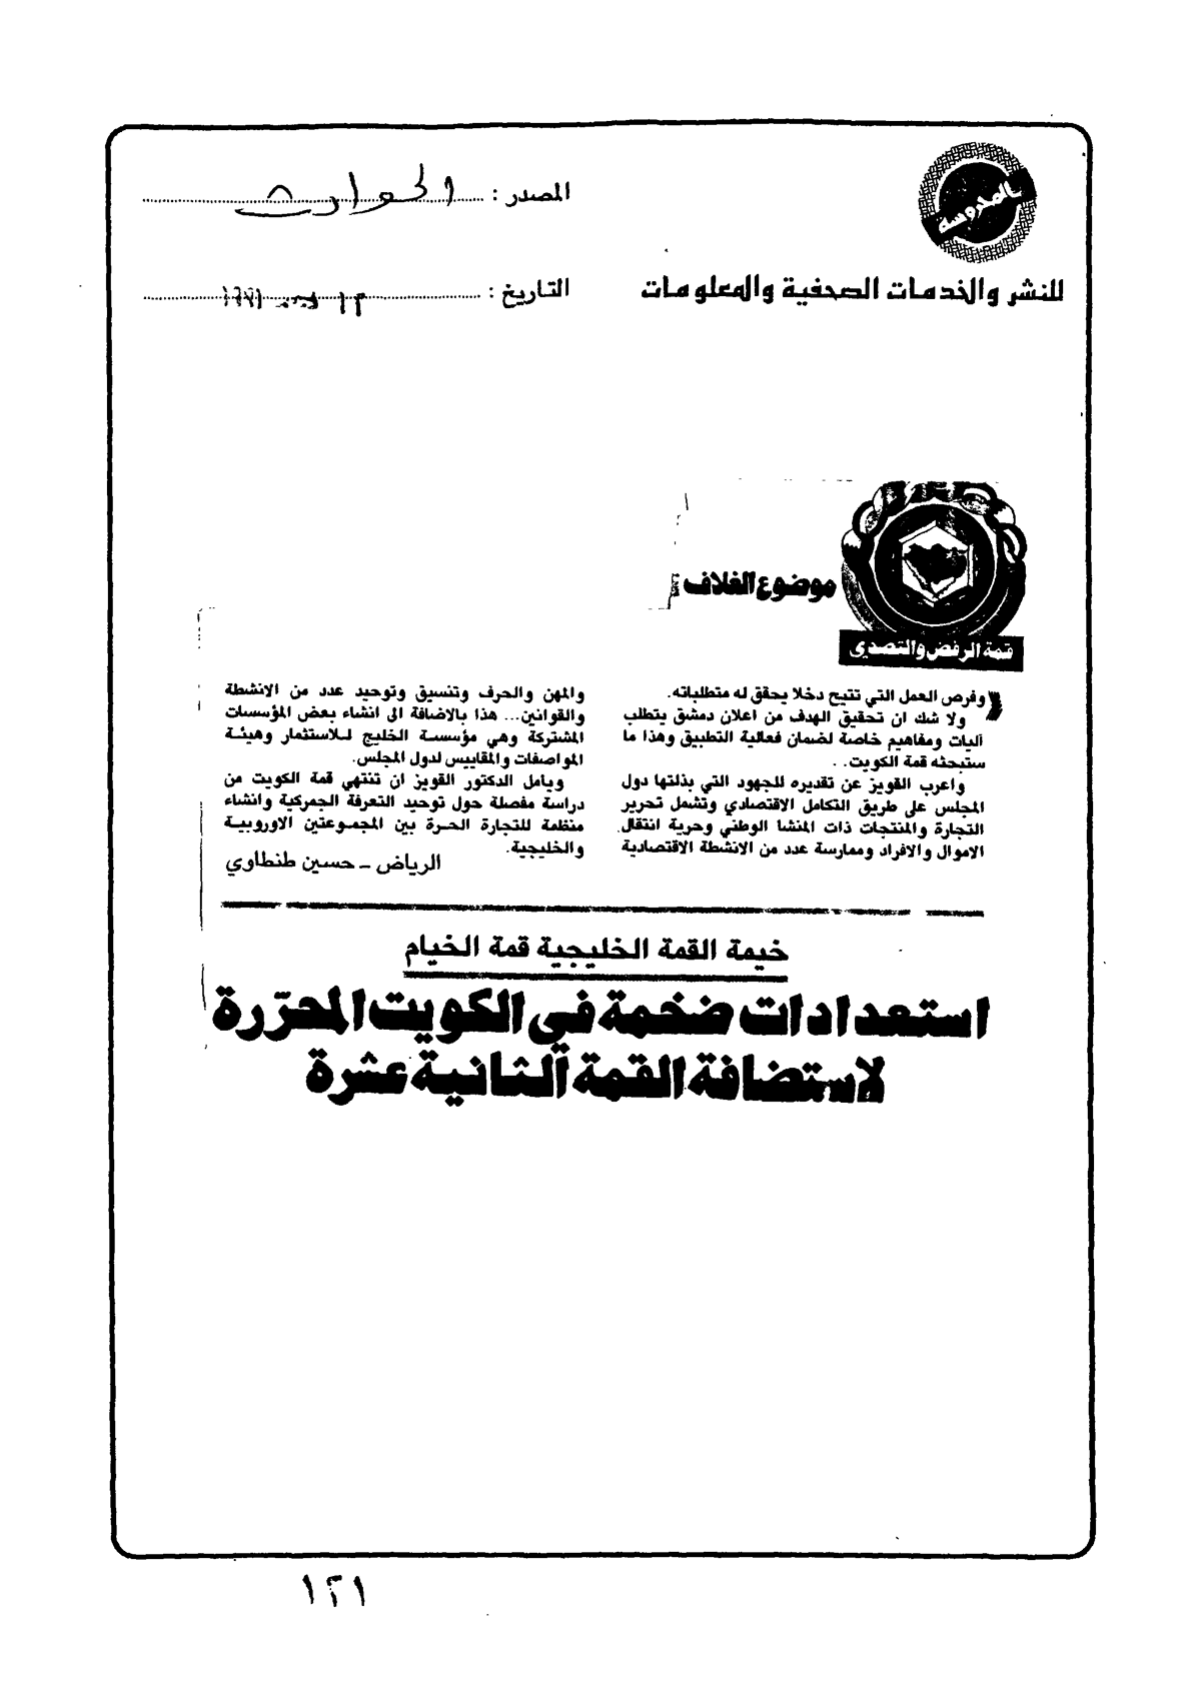 المحروسة
للنشر والخدمات الصحفية والمعلومات
المصدر : الحوادث
التاريخ :
موضوع الغلاف
قمة الرفض والتصدى
وفرص العمل التي تتيح دخلا يحقق له متطلباته.
ولا شك ان تحقيق الهدف من اعلان دمشق يتطلب
آليات ومفاهيم خاصة لضمان فعالية التطبيق وهذا ما
ستبحثه قمة الكويت..
واعرب القويز عن تقديره للجهود التي بذلتها دول
المجلس على طريق التكامل الاقتصادي وتشمل تحرير
التجارة والمنتجات ذات المنشا الوطني وحرية انتقال
الاموال والافراد وممارسة عدد من الانشطة الاقتصادية
والمهن والحرف وتنسيق وتوحيد عدد من الانشطة
والقوانين... هذا بالاضافة الى انشاء بعض المؤسسات
المشتركة وهي مؤسسة الخليج للاستثمار وهيئة
المواصفات والمقاييس لدول المجلس.
ويامل الدكتور القويز ان تنتهي قمة الكويت من
دراسة مفصلة حول توحيد التعرفة الجمركية وانشاء
منظمة للتجارة الحرة بين المجموعتين الاوروبية
والخليجية.
الرياض ـ حسين طنطاوي
خيمة القمة الخليجية قمة الخيام
استعدادات ضخمة في الكويت المحرّرة
لاستضافة القمة الثانية عشرة
١٢١